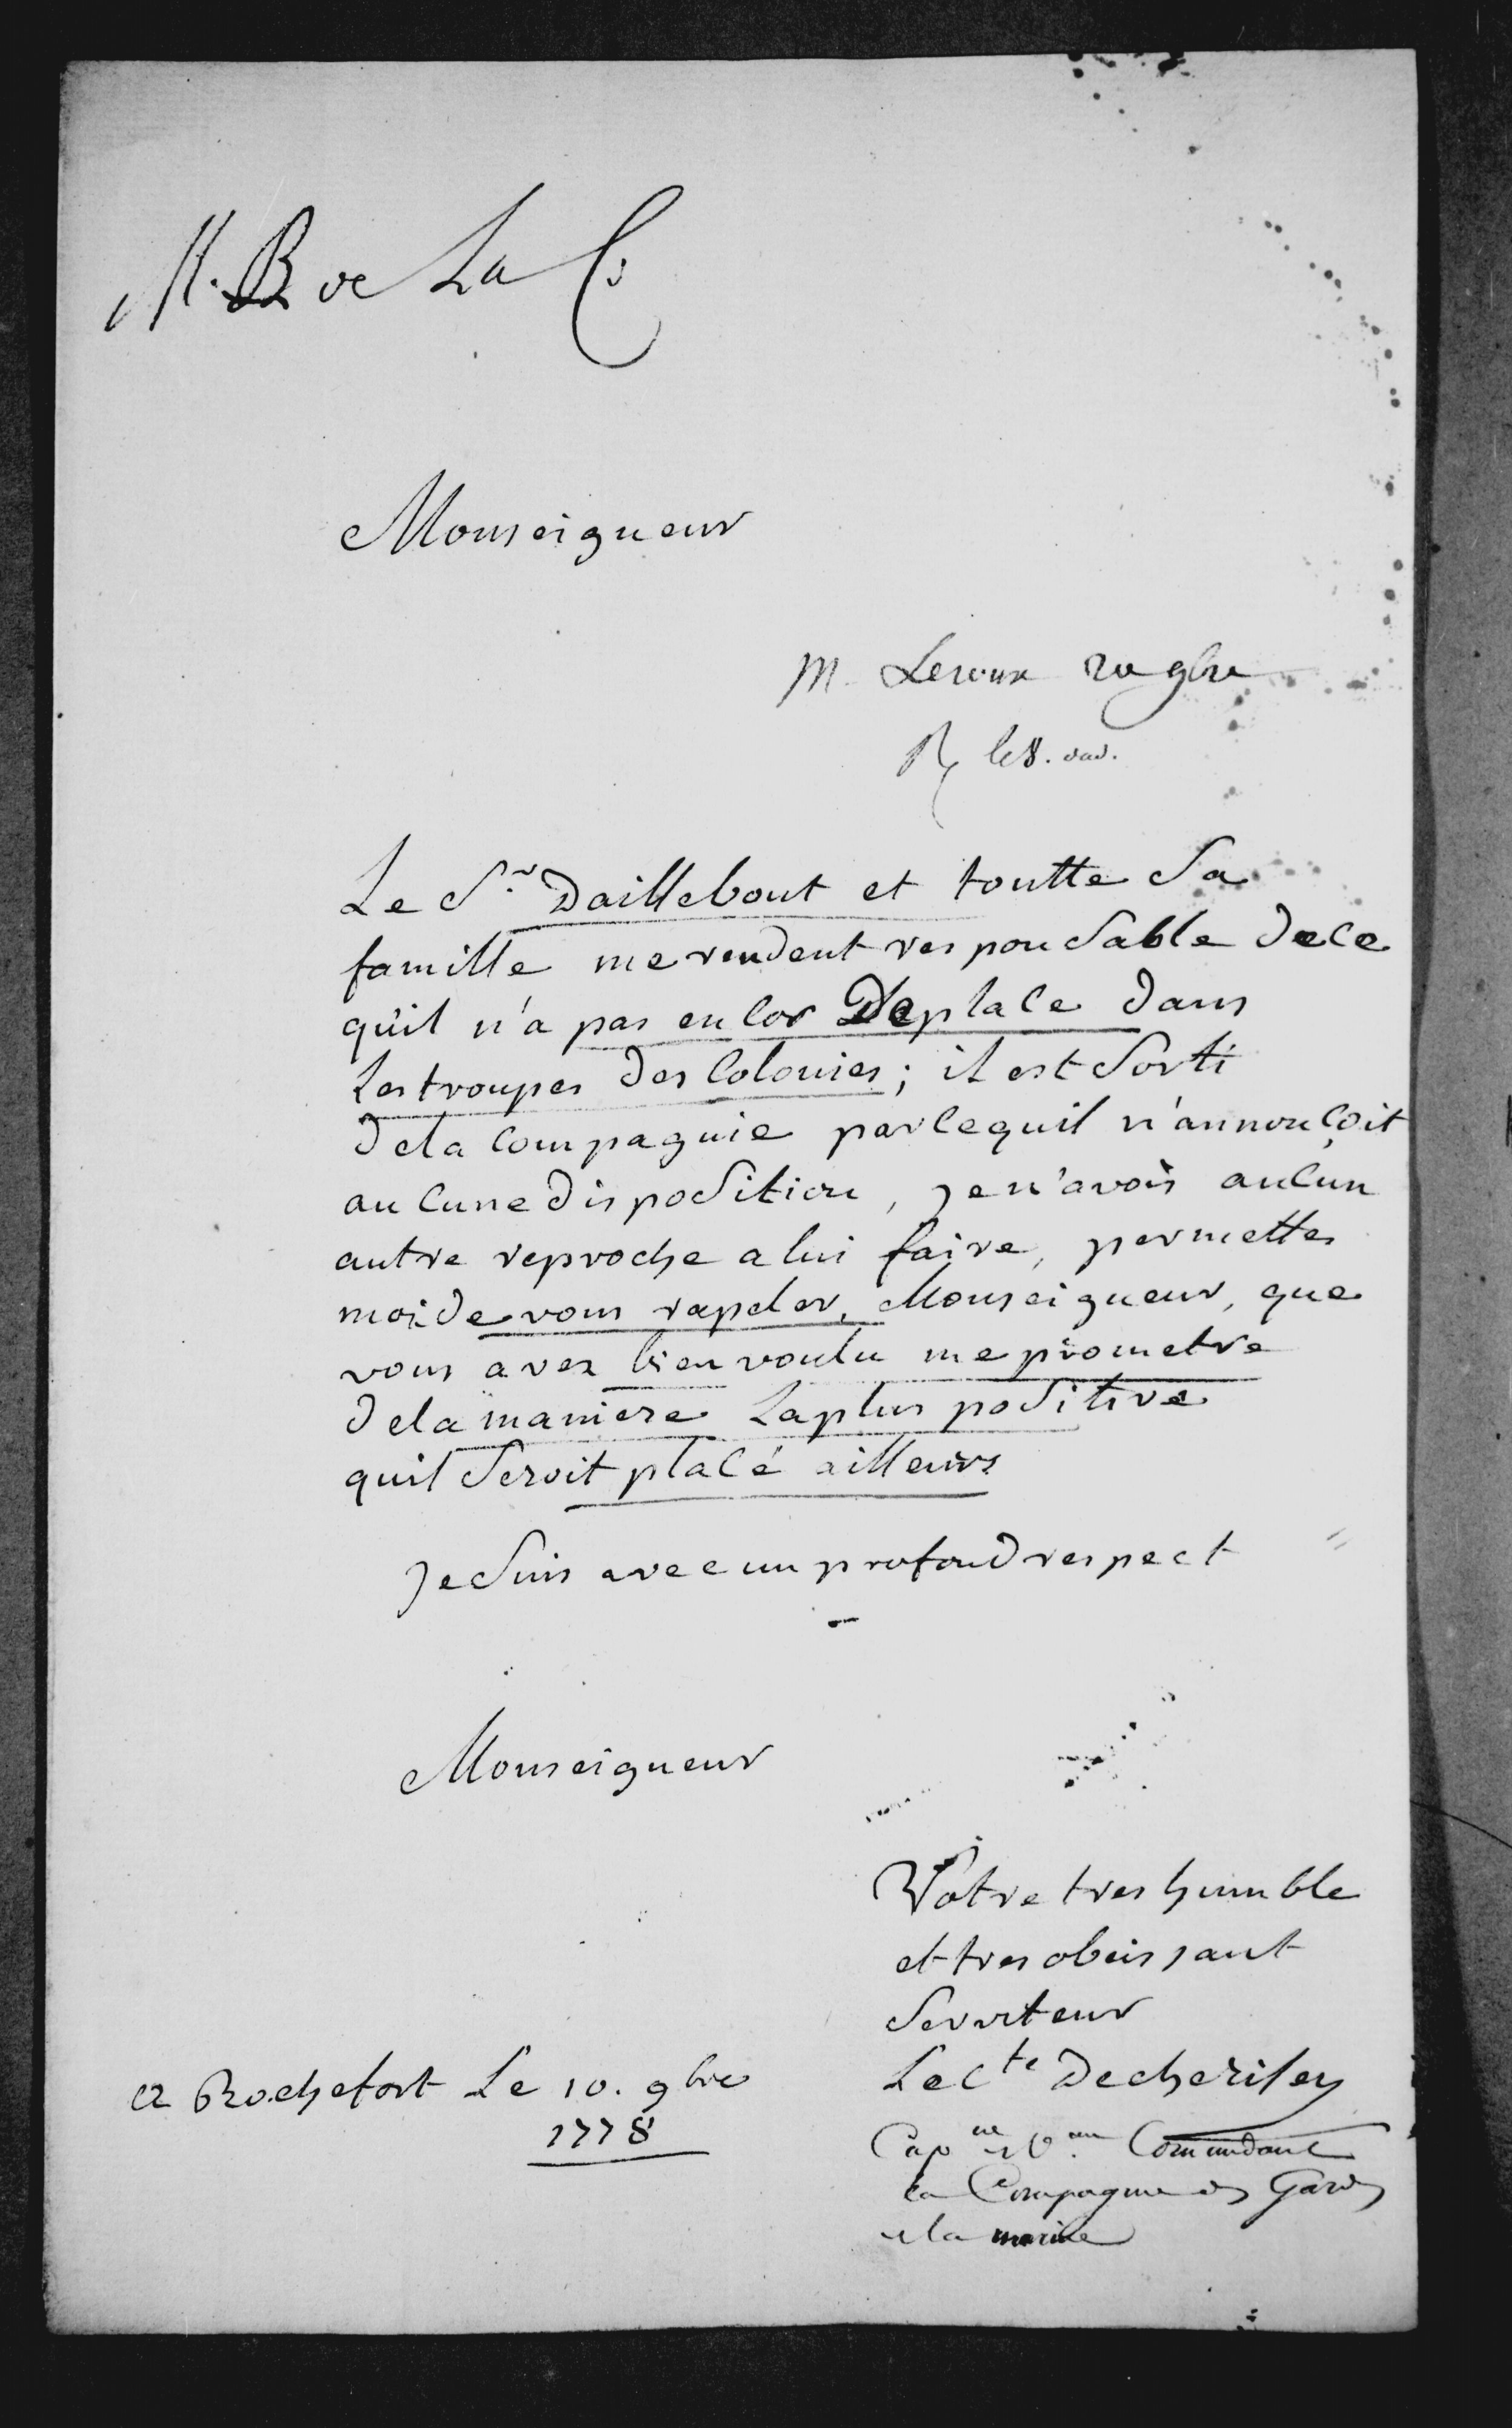 M. B de La C.
Monseigneur
M. Leroux 9bre
R le 8. dud.
Le Sr. Daillebout et toutte Sa
famille me rendent responsable de ce
qu'il n'a pas encor De place dans
Les troupes des Colonies; il est Sorti
de la Compagnie parce quil n'annonçoit
aucune disposition, je n'avois aucun
autre reproche a lui faire, permettes
moi de vous rapeler, Monseigneur, que
vous aves bien voulu me prometre
de la maniere La plus positive
quil Seroit placé ailleurs
Je Suis avec un profond respect
Monseigneur
Vôtre tres humble
et tres obeissant
Serviteur
Le Cte De cherisey
Capne de Vau Commandant
la Compagnie des Gardes
de la marine
a Rochefort Le 10. 9bre
1778